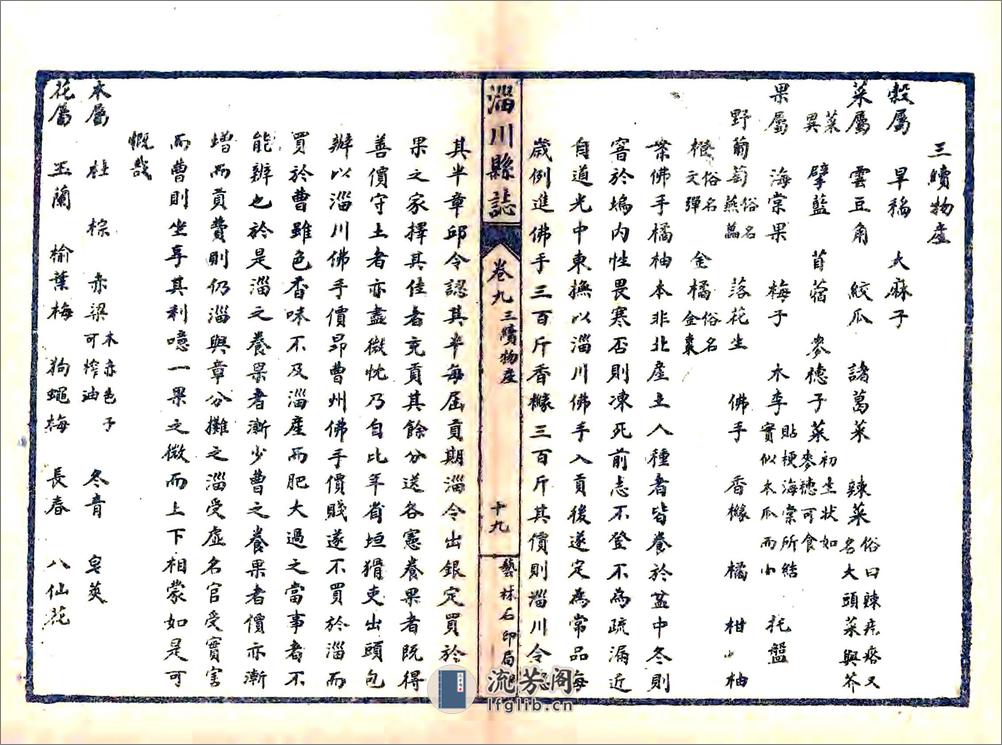 三續物產
穀屬　早稻　大麻子
菜屬　雲豆角　絞瓜　諸葛菜　辣菜俗曰辣疙瘩又名大頭菜與芥
菜異　擘藍　苜蓿　麥穗子菜初生狀如麥穗可食
果屬　海棠果　梅子　木李貼梗海棠所結實似木瓜而小　托盤
野葡萄俗名　落花生　佛手　香櫞　橘　柑　柚
俗名　金橘俗名金棗
案佛手橘柚本非北產土人種者皆養於盆中冬則
窖於塢內性畏寒否則凍死前志不登不為疏漏近
自道光中東撫以淄川佛手入貢後遂定為常品每
歲例進佛手三百斤香櫞三百斤其價則淄川令
其半章邱令認其半每屆貢期淄令出銀定買於
果之家擇其佳者充貢其餘分送各憲養果者既得
善價守土者亦盡微忱乃自比年省垣猾吏出頭包
辦以淄川佛手價昂曹州佛手價賤遂不買於淄而
買於曹雖色香味不及淄產而肥大過之當事者不
能辨也於是淄之養果者漸少曹之養果者價亦漸
增而貢費則仍淄與章分攤之淄受虛名官受實害
而曹則坐享其利噫一果之微而上下相蒙如是可
慨哉
木屬　杜　棕　赤梁木赤色子可榨油　冬青　皂莢
花屬　玉蘭　榆葉梅　狗蠅梅　長春　八仙花
淄川縣誌
卷九　三續物產
十九
藝林石印局
流芳阁
lfglib.cn